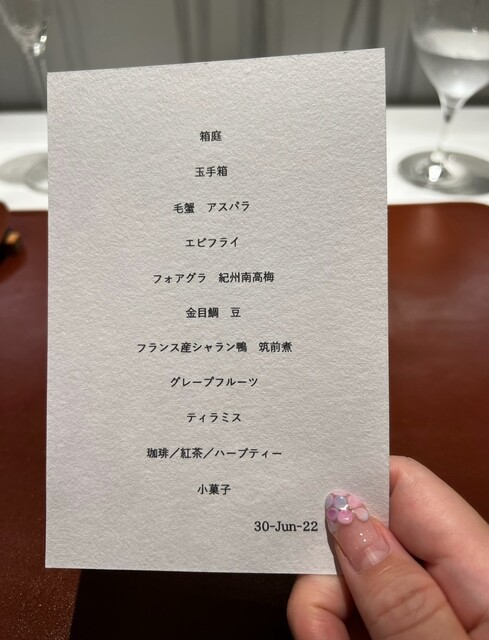 箱庭
玉手箱
毛蟹　アスパラ
エビフライ
フォアグラ　紀州南高梅
金目鯛　豆
フランス産シャラン鴨　筑前煮
グレープフルーツ
ティラミス
珈琲／紅茶／ハーブティー
小菓子
30-Jun-22